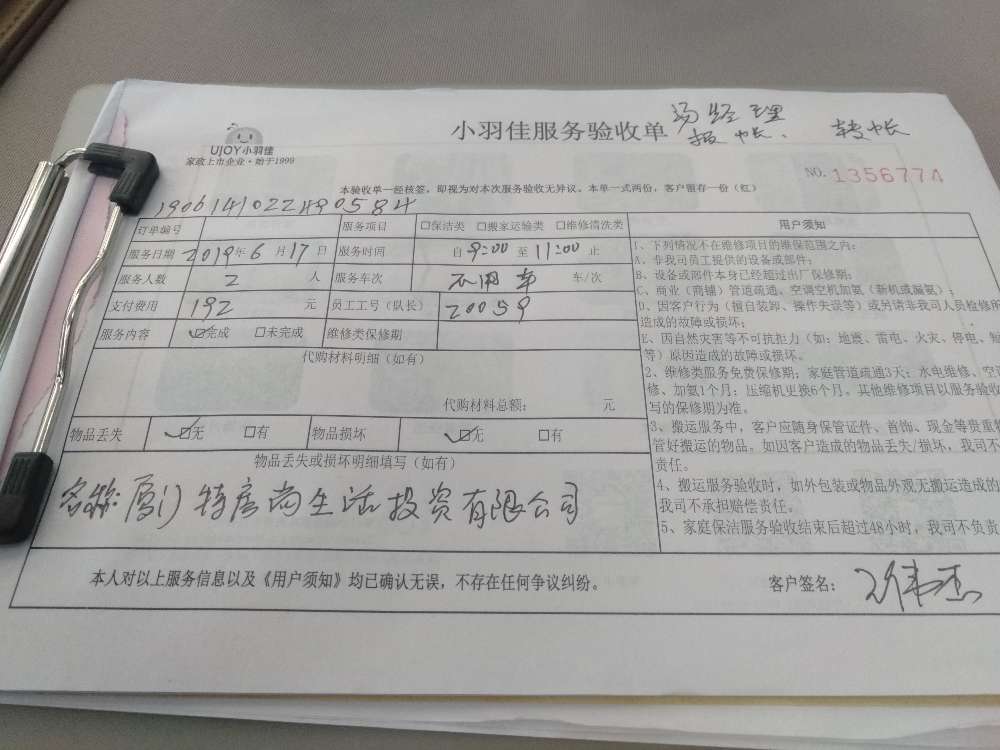 小羽佳服务验收单 经理
报帐. 转帐
UJOY小羽佳
家政上市企业·始于1999
NO. 1356774
本验收单一经核签，即视为对本次服务验收无异议。本单一式两份，客户留存一份（红）
订单编号 1906141022490584 服务项目 □保洁类 □搬家运输类 □维修清洗类
服务日期 2019年6月17日 服务时间 自9:00至11:00止
服务人数 2 人 服务车次 不用车 车/次
支付费用 192 元 员工工号（队长） 20059
服务内容 ☑完成 □未完成 维修类保修期
代购材料明细（如有）
代购材料总额： 元
物品丢失 ☑无 □有 物品损坏 ☑无 □有
物品丢失或损坏明细填写（如有）
名称:厦门特房尚生活投资有限公司
用户须知
1、下列情况不在维修项目的维保范围之内：
A、非我司员工提供的设备或部件；
B、设备或部件本身已经超过出厂保修期；
C、商业（商铺）管道疏通、空调空机加氨（新机或漏氨）；
D、因客户行为（擅自装卸、操作失误等）或另请非我司人员检修所
造成的故障或损坏；
E、因自然灾害等不可抗拒力（如：地震、雷电、火灾、停电、短
等）原因造成的故障或损坏。
2、维修类服务免费保修期：家庭管道疏通3天；水电维修、空
修、加氨1个月；压缩机更换6个月。其他维修项目以服务验收
写的保修期为准。
3、搬运服务中，客户应随身保管证件、首饰、现金等贵重
管好搬运的物品。如因客户造成的物品丢失/损坏，我司不
责任。
4、搬运服务验收时，如外包装或物品外观无搬运造成的
我司不承担赔偿责任。
5、家庭保洁服务验收结束后超过48小时，我司不负责
本人对以上服务信息以及《用户须知》均已确认无误，不存在任何争议纠纷。 客户签名：